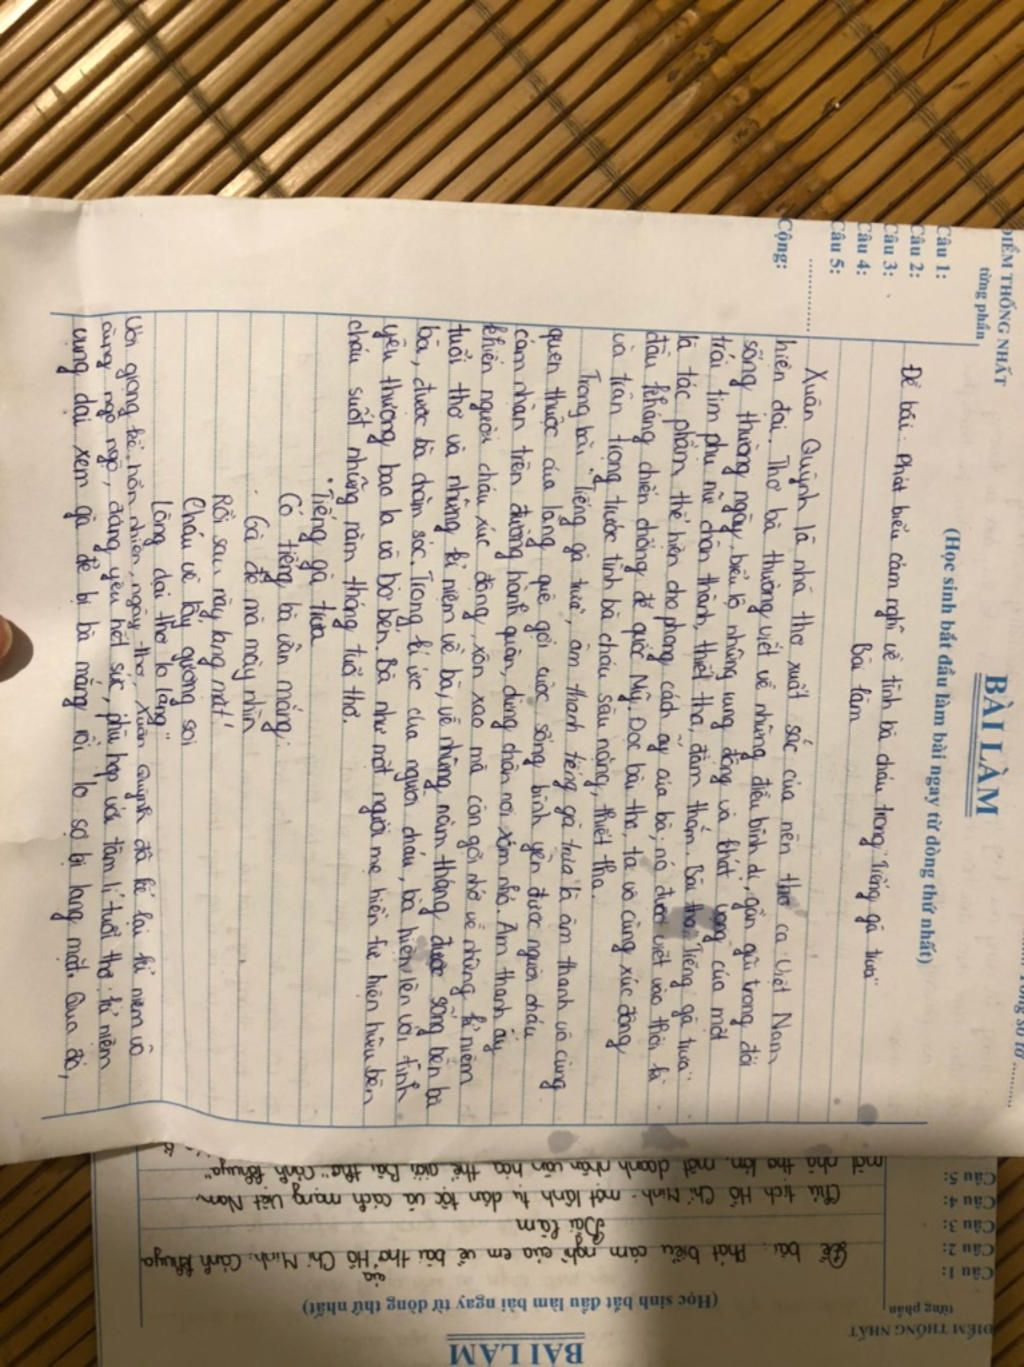 ĐIỂM THỐNG NHẤT
từng phần
Câu 1:
Câu 2:
Câu 3:
Câu 4:
Câu 5:
Cộng:
BÀI LÀM
(Học sinh bắt đầu làm bài ngay từ dòng thứ nhất)
Đề bài: Phát biểu cảm nghĩ về tình bà cháu trong "Tiếng gà trưa"
Bài làm
Xuân Quỳnh là nhà thơ xuất sắc của nền thơ ca Việt Nam
hiện đại. Thơ bà thường viết về những điều bình dị, gần gũi trong đời
sống thường ngày, biểu lộ những rung động và khát vọng của một
trái tim phụ nữ chân thành, thiết tha, đằm thắm. Bài thơ "Tiếng gà trưa"
là tác phẩm thể hiện cho phong cách ấy của bà, nó được viết vào thời kì
đầu kháng chiến chống đế quốc Mỹ. Đọc bài thơ, ta vô cùng xúc động
và trân trọng trước tình bà cháu sâu nặng, thiết tha.
Trong bài "Tiếng gà trưa", âm thanh tiếng gà trưa là âm thanh vô cùng
quen thuộc của làng quê gợi cuộc sống bình yên được người cháu
cảm nhận trên đường hành quân, dừng chân nơi xóm nhỏ. Âm thanh ấy
khiến người cháu xúc động, xôn xao mà còn gợi nhớ về những kỉ niệm
tuổi thơ và những kỉ niệm về bà, về những năm tháng được sống bên bà
bà, được bà chăm sóc. Trong kí ức của người cháu, bà hiện lên với tình
yêu thương bao la vô bờ bến. Bà như một người mẹ hiền từ hiện hữu bên
cháu suốt những năm tháng tuổi thơ.
"Tiếng gà trưa
Có tiếng bà vẫn mắng:
- Gà đẻ mà mày nhìn
Rồi sau này lang mặt!
Cháu về lấy gương soi
Lòng dại thơ lo lắng"
Với giọng kể hồn nhiên, ngây thơ, Xuân Quỳnh đã kể lại kỉ niệm vô
cùng ngộ nghĩ, đáng yêu hết sức, phù hợp với tâm lí tuổi thơ: kỉ niệm
vụng dại xem gà đẻ bị bà mắng rồi lo sợ bị lang mặt. Qua đó,
BÀI LÀM
(Học sinh bắt đầu làm bài ngay từ dòng thứ nhất)
ĐIỂM THỐNG NHẤT
từng phần
Câu 1:
Câu 2:
Câu 3:
Câu 4:
Câu 5:
Đề bài: Phát biểu cảm nghĩ của em về bài thơ Hồ Chí Minh: Cảnh khuya
của
Bài làm
Chủ tịch Hồ Chí Minh - một lãnh tụ dân tộc và cách mạng Việt Nam
một nhà thơ lớn, một danh nhân văn hóa thế giới. Bài thơ "Cảnh khuya"